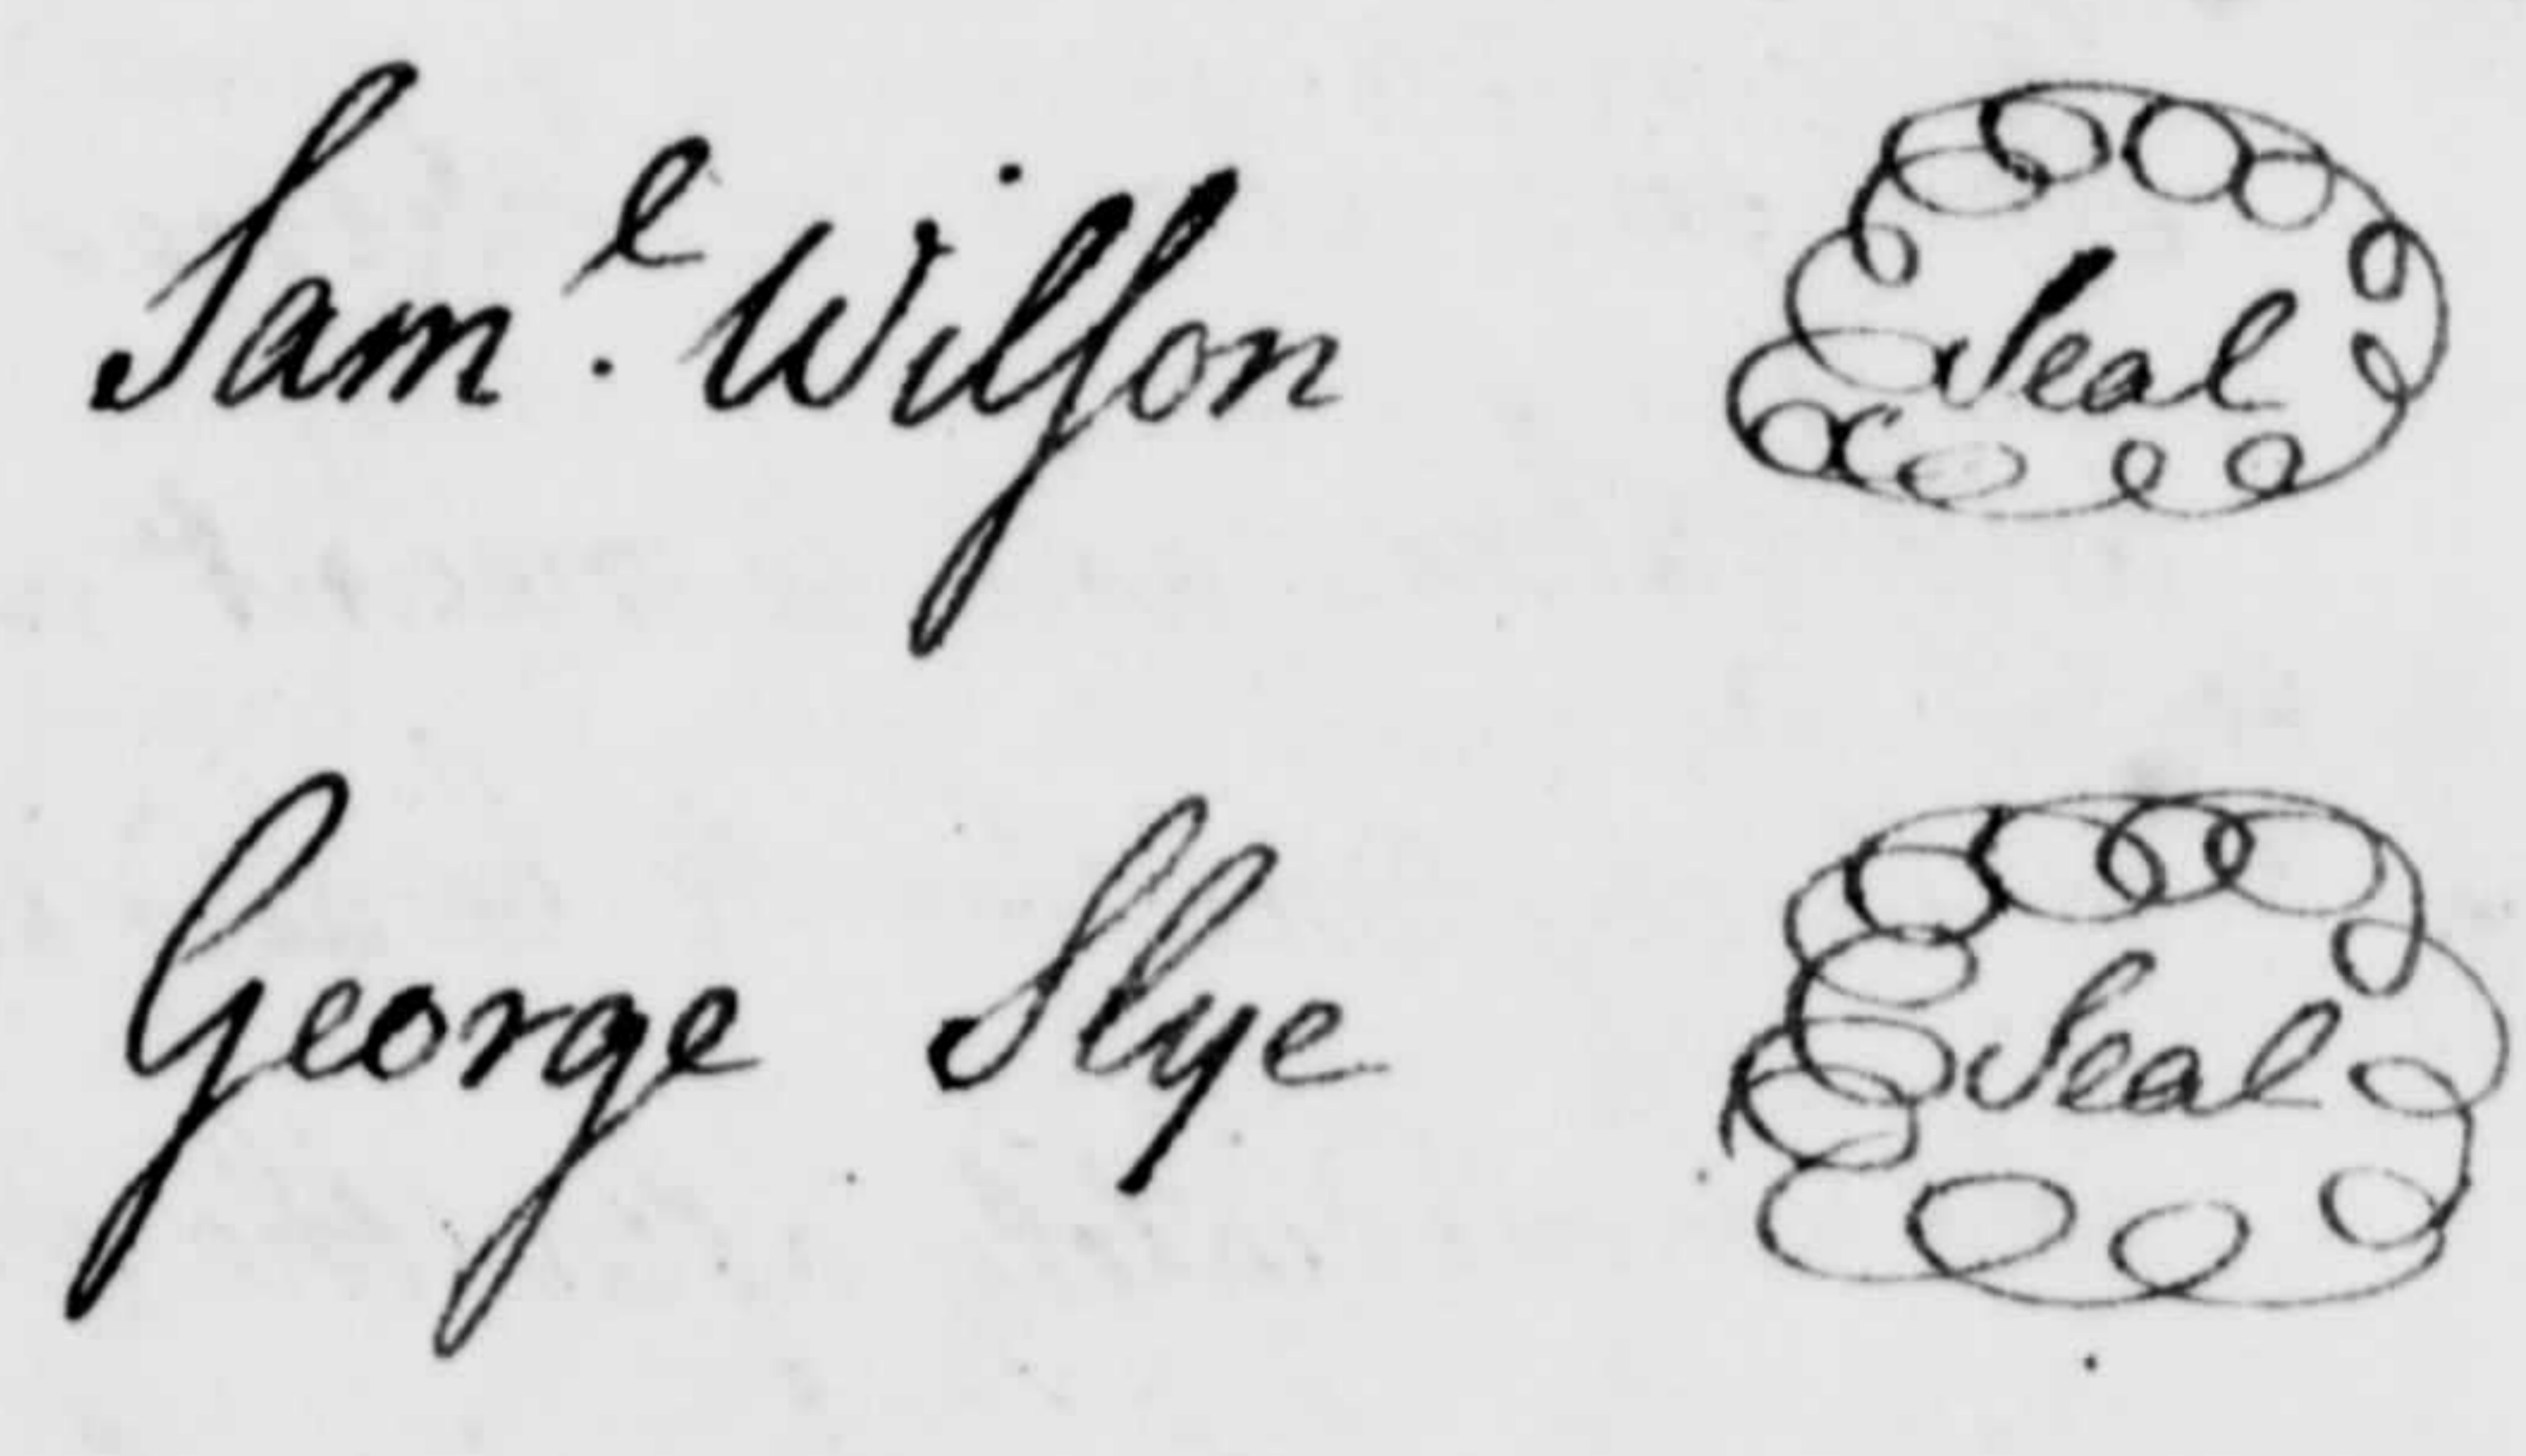 Sam.l Wilson Seal
George Slye Seal